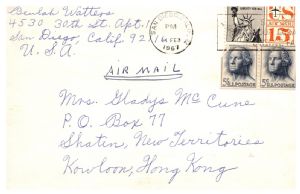 Beulah Watters
4530 30th St. Apt.
San Diego, Calif. 921
U.S.A
PM
FEB
1967
15¢
AIR MAIL
5¢ U.S. POSTAGE
5¢ U.S. POSTAGE
Mrs. Gladys Mc Cune
P.O. Box 77
Shatin, New Territories
Kowloon, Hong Kong